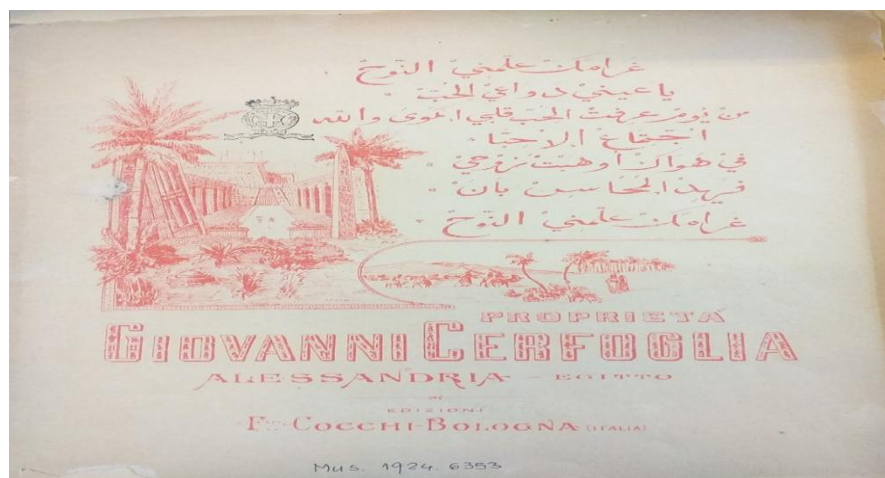 غرامك علمني النوح
يا عيني دواعي الحب
من يوم عرفت الحب قلبي انموى والله
اجتماع الاحبا
في هواك اوهبت روحي
فريد المحاسن بان
غرامك علمني النوح
PROPRIETÀ
GIOVANNI CERFOGLIA
ALESSANDRIA - EGITTO
EDIZIONI
F.lli COCCHI-BOLOGNA (ITALIA)
Mus. 1924. 6353